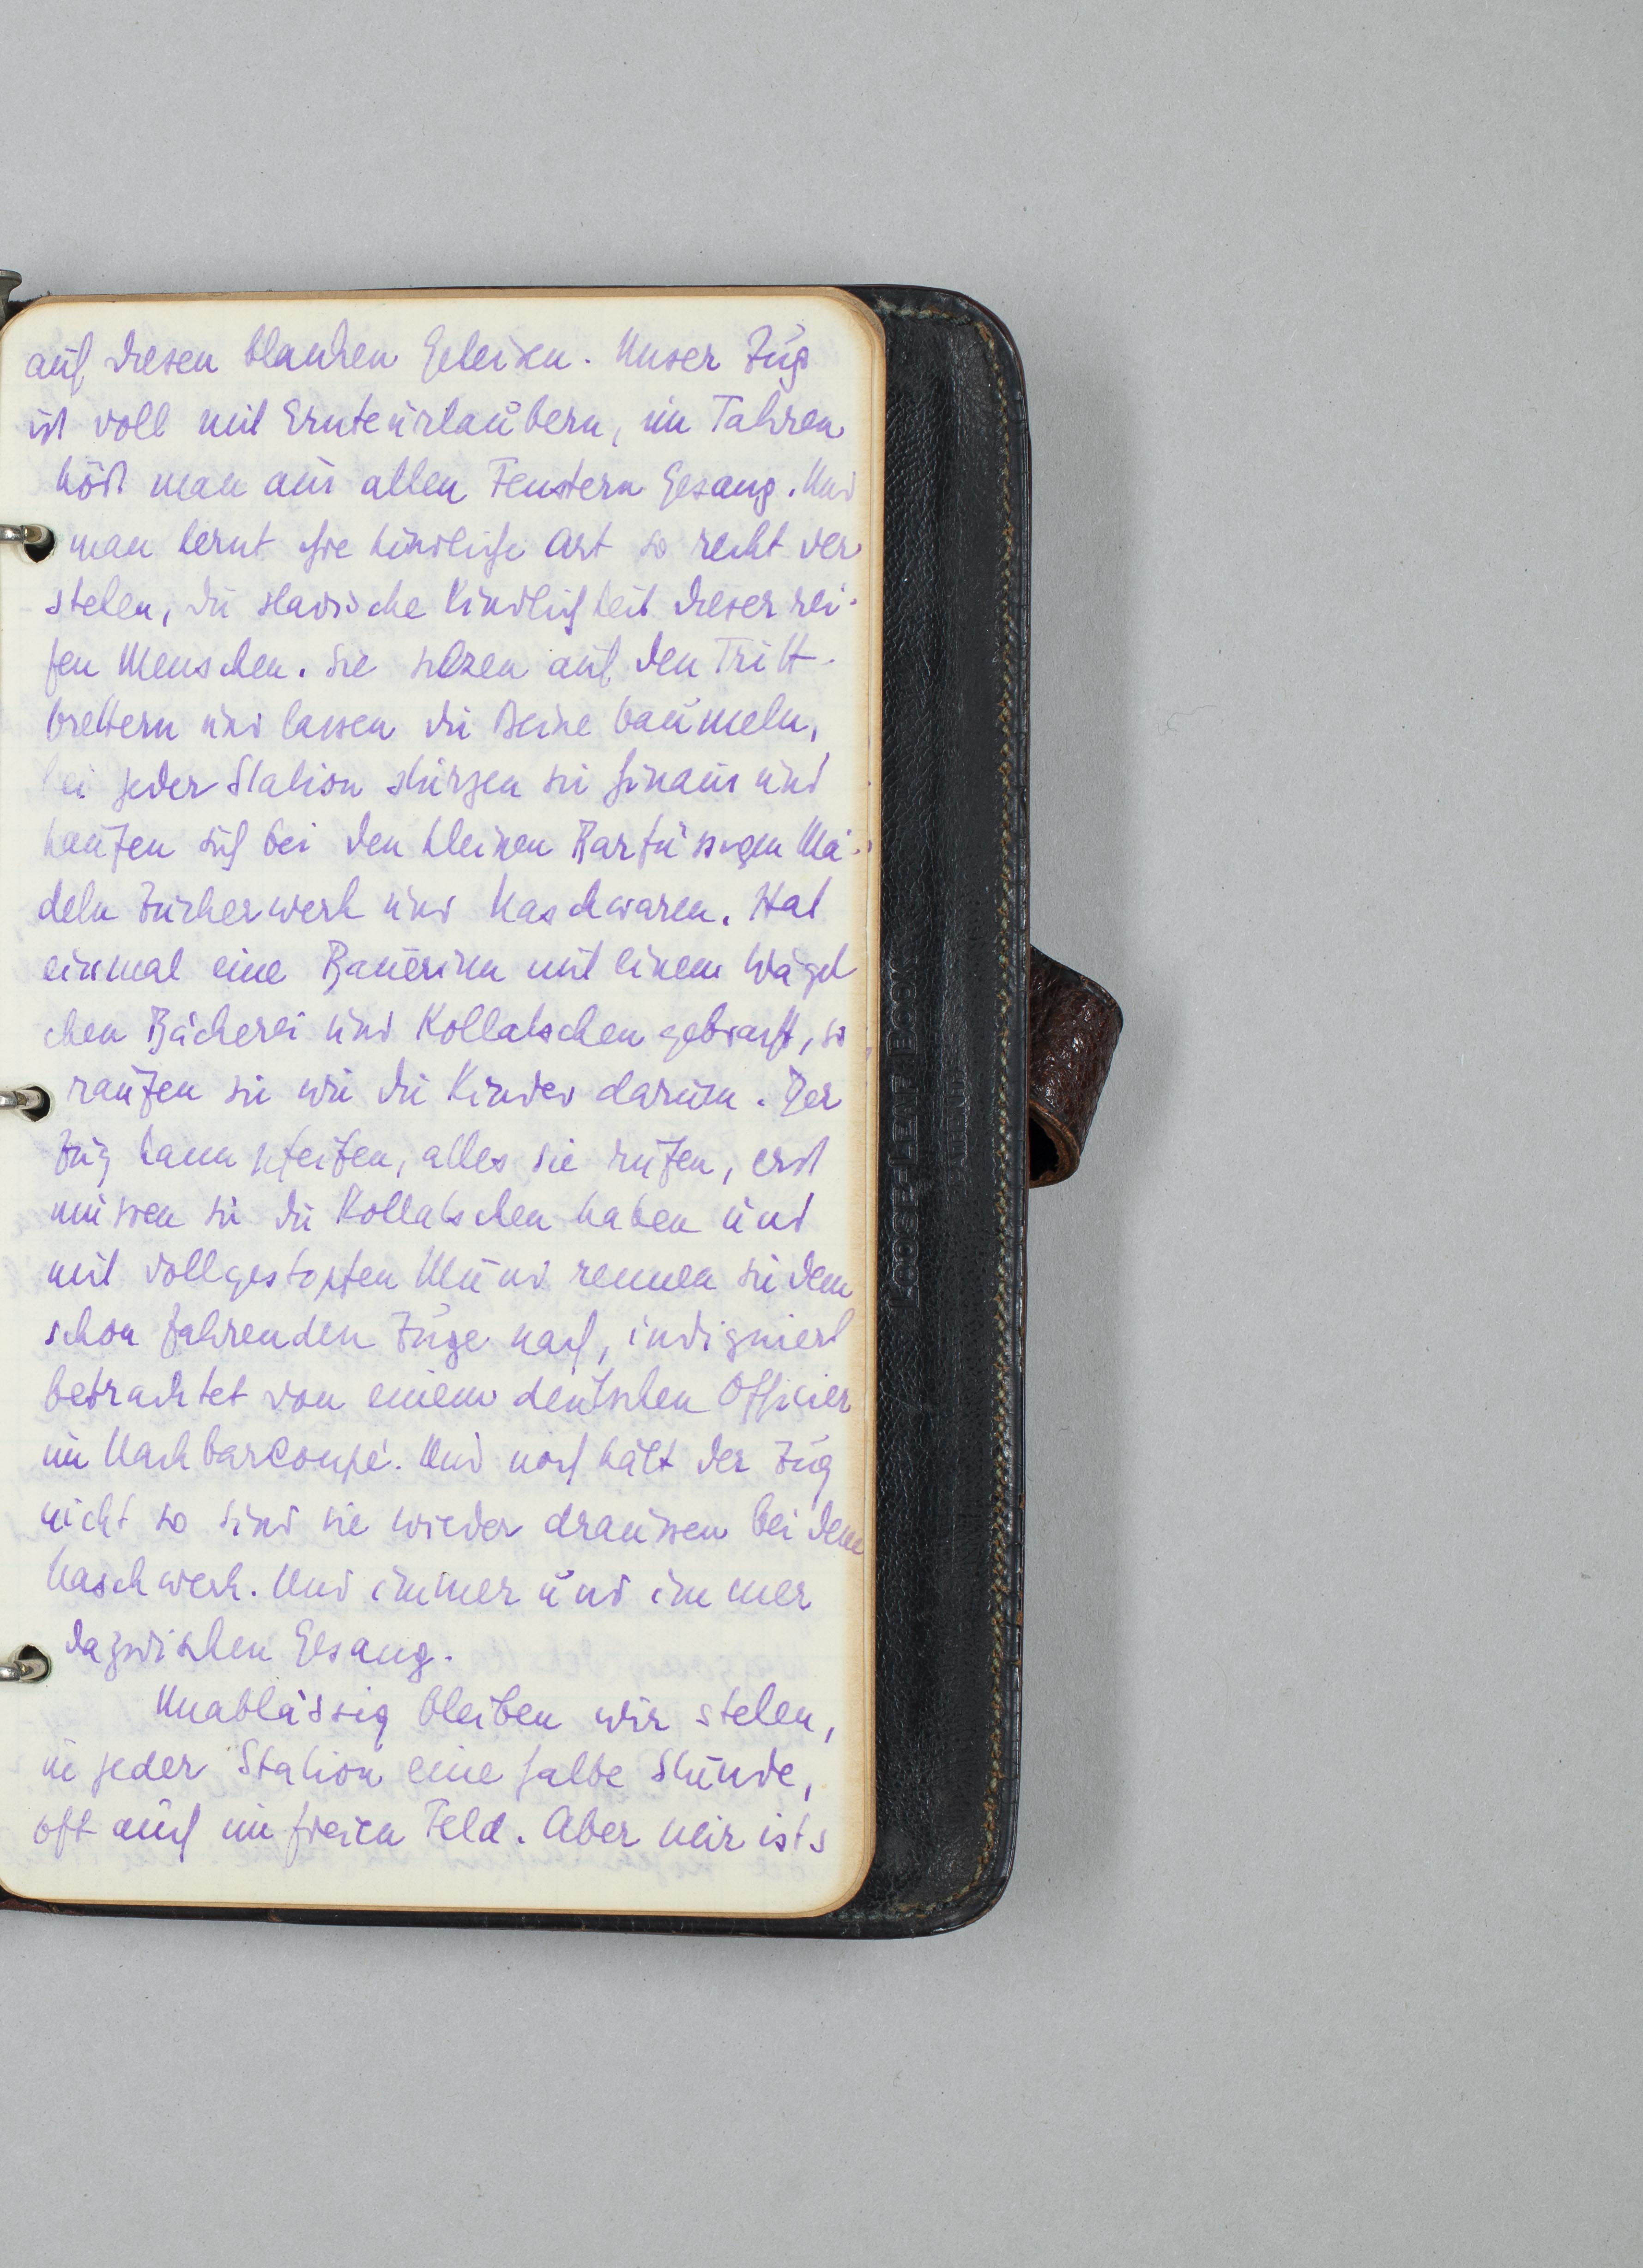 auf diesen blanken Geleisen. Unser Zug
ist voll mit Ernteurlaubern, im Fahren
hört man aus allen Fenstern Gesang. Und
man lernt die kindliche Art so recht ver
stehen, die slavische Kindlichkeit dieser rei-
fen Menschen. Sie sitzen auf den Tritt-
brettern und lassen die Beine baumeln,
bei jeder Station stürzen sie hinaus und
kaufen sich bei den kleinen Barfüssigen Mä-
deln Zuckerwerk und Naschwaren. Hat
einmal eine Bäuerinn mit einem Wägel
chen Bäckerei und Kollatschen gebracht, so
raufen sie wie die Kinder darum. Der
Zug kann pfeifen, alles sie rufen, erst
müssen sie die Kollatschen haben und
mit vollgestopften Mund rennen sie dem
schon fahrenden Zuge nach, indigniert
betrachtet von einem deutschen Officier
im Nachbarcoupé. Und noch hält der Zug
nicht so sind sie wieder draussen bei dem
Naschwerk. Und immer und immer
dazwischen Gesang.
Unablässig bleiben wir stehen,
in jeder Station eine halbe Stunde,
oft auch im freien Feld. Aber mir ists
LOOSE-LEAF BOOK